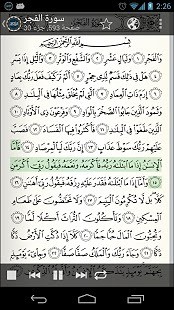 2:26
سورة الفجر
صفحة 593, جزء 30
بِسْمِ ٱللَّهِ ٱلرَّحْمَٰنِ ٱلرَّحِيمِ
وَٱلْفَجْرِ ١ وَلَيَالٍ عَشْرٍ ٢ وَٱلشَّفْعِ وَٱلْوَتْرِ ٣ وَٱلَّيْلِ إِذَا يَسْرِ
٤ هَلْ فِى ذَٰلِكَ قَسَمٌ لِّذِى حِجْرٍ ٥ أَلَمْ تَرَ كَيْفَ فَعَلَ رَبُّكَ بِعَادٍ
٦ إِرَمَ ذَاتِ ٱلْعِمَادِ ٧ ٱلَّتِى لَمْ يُخْلَقْ مِثْلُهَا فِى ٱلْبِلَٰدِ
٨ وَثَمُودَ ٱلَّذِينَ جَابُوا۟ ٱلصَّخْرَ بِٱلْوَادِ ٩ وَفِرْعَوْنَ ذِى ٱلْأَوْتَادِ
١٠ ٱلَّذِينَ طَغَوْا۟ فِى ٱلْبِلَٰدِ ١١ فَأَكْثَرُوا۟ فِيهَا ٱلْفَسَادَ ١٢
فَصَبَّ عَلَيْهِمْ رَبُّكَ سَوْطَ عَذَابٍ ١٣ إِنَّ رَبَّكَ لَبِٱلْمِرْصَادِ ١٤ فَأَمَّا
ٱلْإِنسَٰنُ إِذَا مَا ٱبْتَلَىٰهُ رَبُّهُۥ فَأَكْرَمَهُۥ وَنَعَّمَهُۥ فَيَقُولُ رَبِّىٓ أَكْرَمَنِ
١٥ وَأَمَّآ إِذَا مَا ٱبْتَلَىٰهُ فَقَدَرَ عَلَيْهِ رِزْقَهُۥ فَيَقُولُ رَبِّىٓ أَهَٰنَنِ ١٦
كَلَّا ۖ بَل لَّا تُكْرِمُونَ ٱلْيَتِيمَ ١٧ وَلَا تَحَٰٓضُّونَ عَلَىٰ طَعَامِ
ٱلْمِسْكِينِ ١٨ وَتَأْكُلُونَ ٱلتُّرَاثَ أَكْلًا لَّمًّا ١٩ وَتُحِبُّونَ
ٱلْمَالَ حُبًّا جَمًّا ٢٠ كَلَّآ إِذَا دُكَّتِ ٱلْأَرْضُ دَكًّا دَكًّا
٢١ وَجَآءَ رَبُّكَ وَٱلْمَلَكُ صَفًّا صَفًّا ٢٢ وَجِا۟ىٓءَ يَوْمَئِذٍۭ